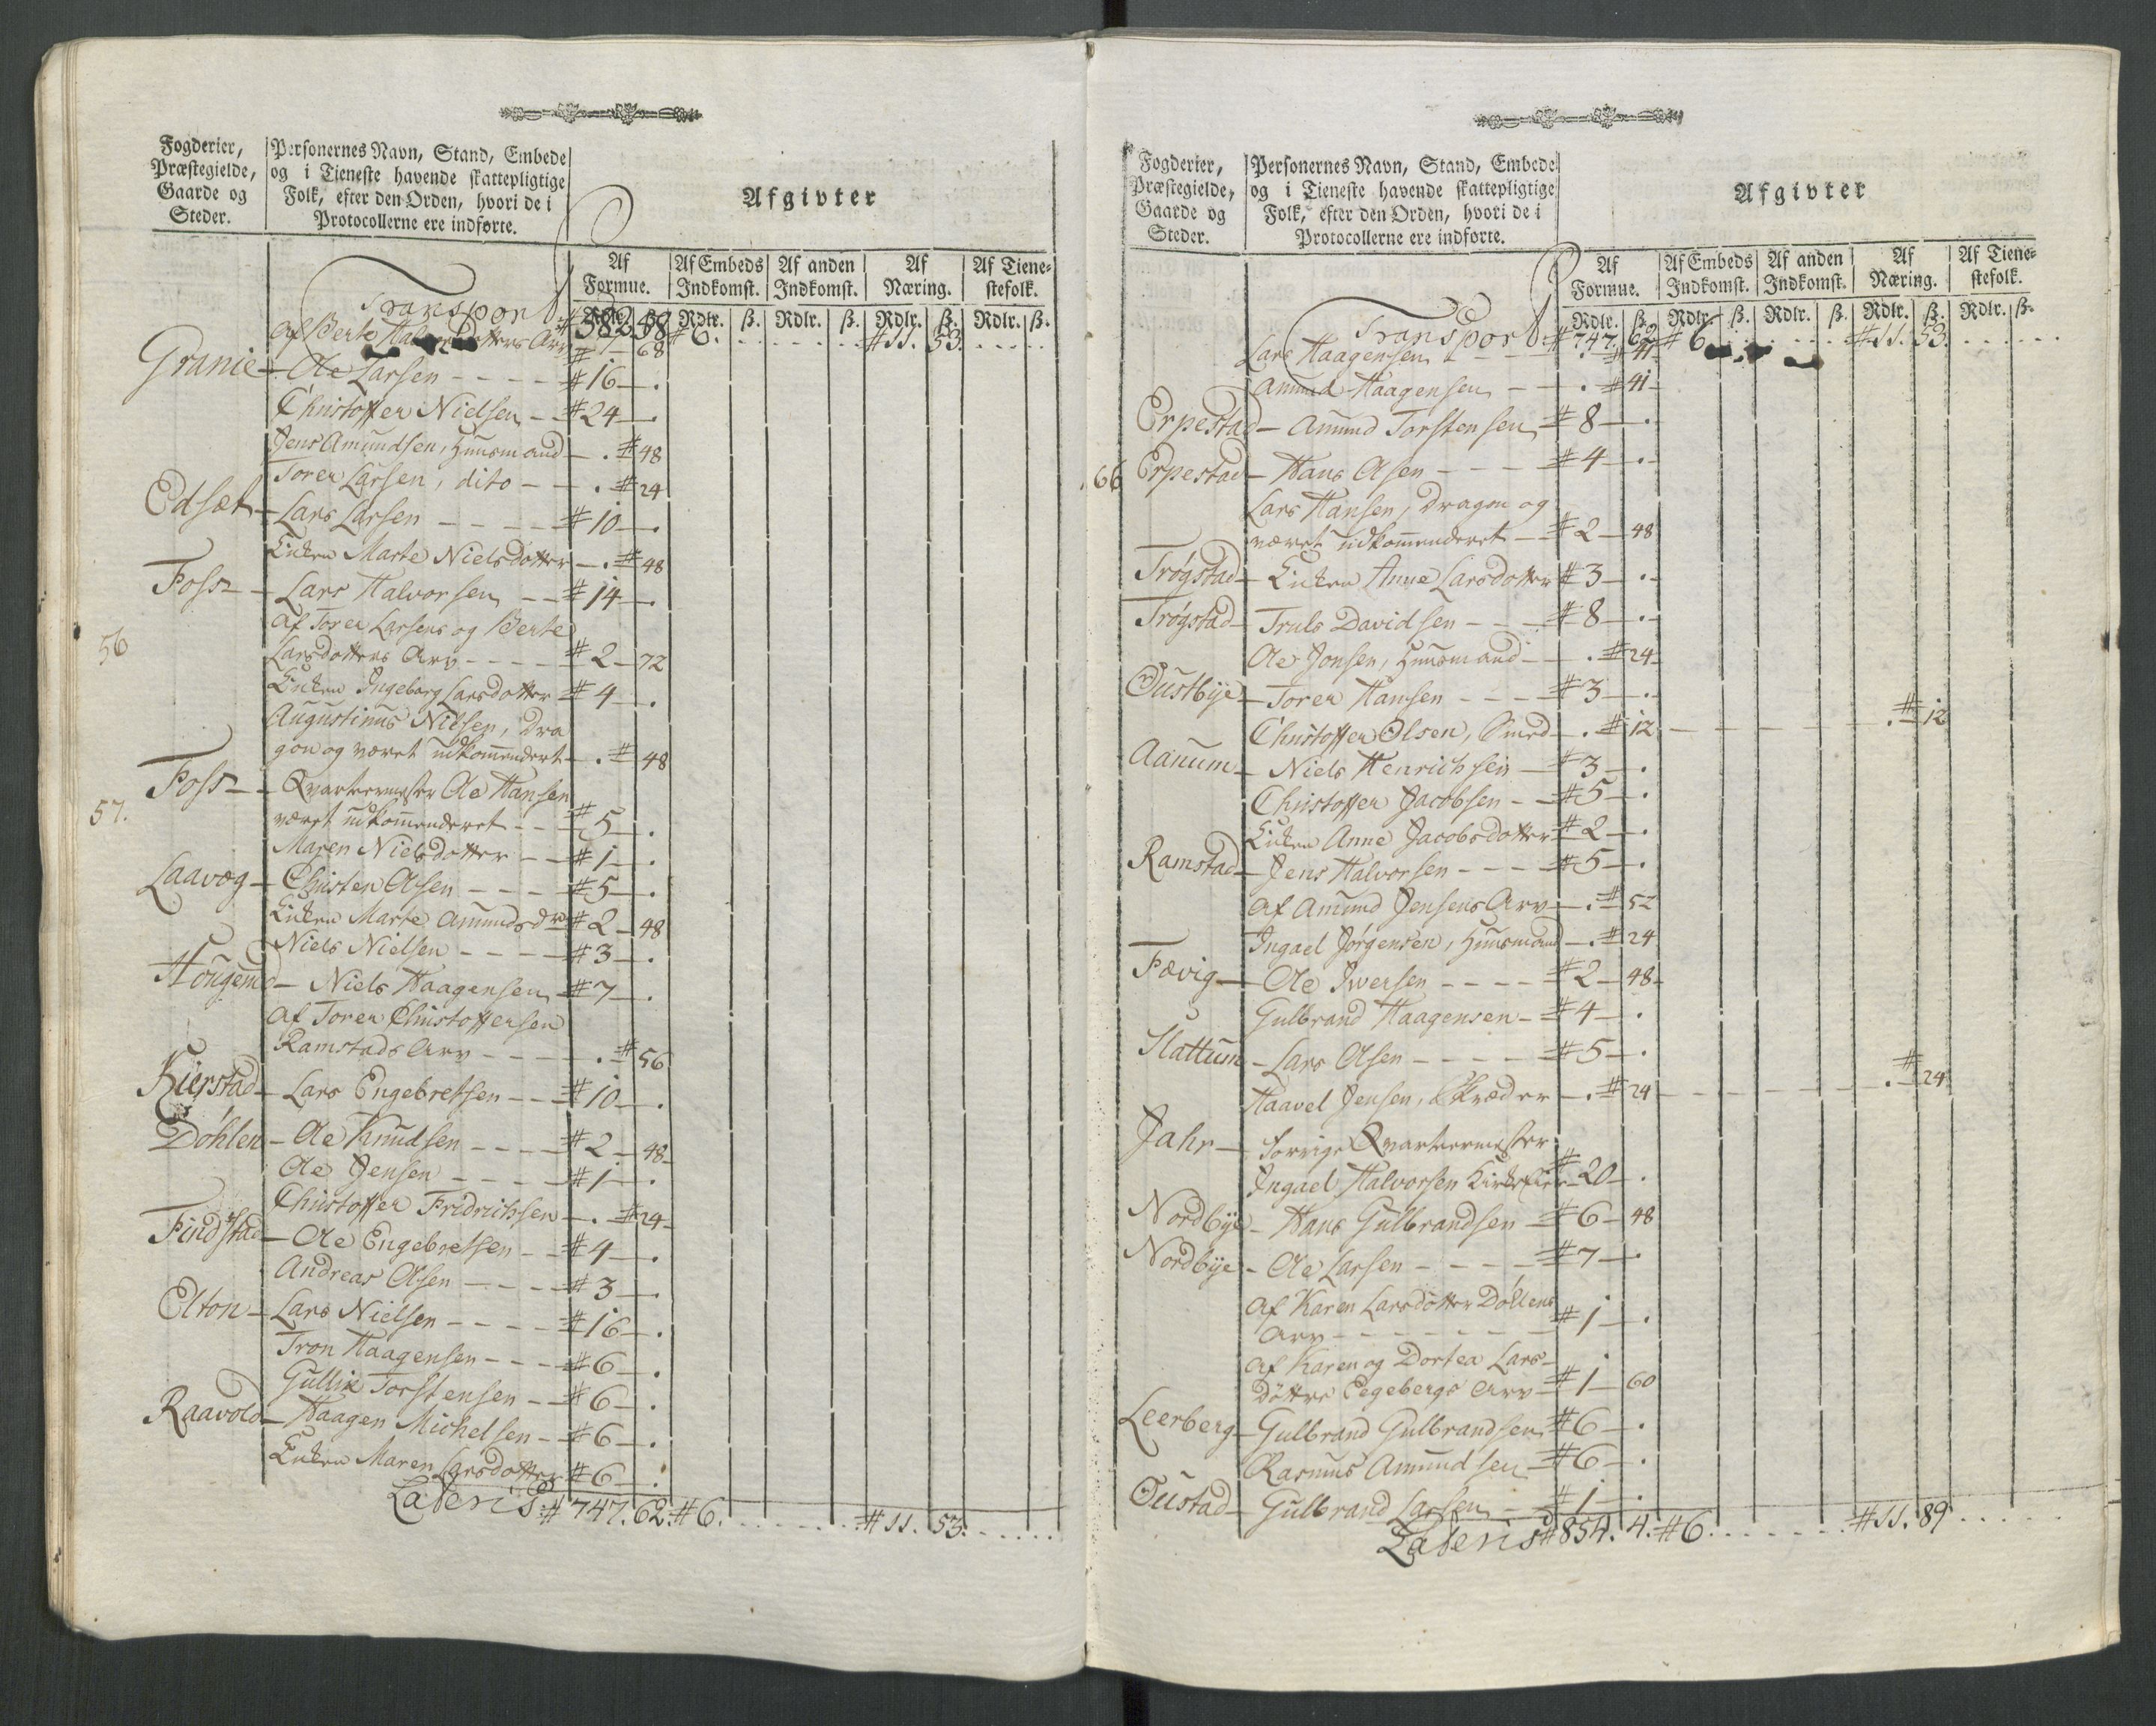 Fogderier, Præstegielde, Gaarde og Steder.
Personernes Navn, Stand, Embede og i Tieneste havende skattepligtige Folk, efter den Orden, hvori de i Protocollerne ere indførte.
Afgivter
Af Formue. Af Embeds Indkomst. Af anden Indkomst. Af Næring. Af Tienestefolk.
Rdlr. ß. Rdlr. ß. Rdlr. ß. Rdlr. ß. Rdlr. ß.
Transport # 582. 58 # 6. # 11. 53.
Af Berte Arv # 1 - 68
Granie - Ole Larsen # 16 - .
Christoffer Nielsen # 24 - .
Jens Amundsen, Huusmand - . # 48
Torer Larsen, dito - . # 24
Edsæt - Lars Larsen # 10 - .
Enken Marte Nielsdotter - . # 48
Foss - Lars Halvorsen # 14 - .
Af Torer Larsens og Berte
Larsdotters Arv # 2 - 72
56
Enken Ingeborg Larsdotter # 4 - .
Augustinus Nilsen, Dra
gon og været udkom̄endert - . # 48
Foss - Qvarteermester Ole Hansen
57. været udkom̄enderet # 5 - .
Maren Nielsdotter # 1 - .
Laavæg - Christen Olsen # 5 - .
Enken Marte Amundsdr # 2 - 48
Niels Nielsen # 3 - .
Hougend - Niels Haagensen # 7 - .
Af Torer Christoffersen
Ramstads Arv - . # 56
Kierstad - Lars Engebretsen # 10 - .
Døhlen - Ole Knudsen # 2 - 48
Ole Jensen # 1 - .
Christoffer Fridrichsen - . # 24
Findstad - Ole Engebretsen # 4 - .
Andreas Olsen # 3 - .
Elton - Lars Nielsen # 16 - .
Tron Haagensen # 6 - .
Gullik Torstensen # 6 - .
Raavold - Haagen Michelsen # 6 - .
Enken Maren Larsdotter # 6 - .
Lateris: # 747. 62. # 6. # 11. 53.
Fogderier, Præstegielde, Gaarde og Steder.
Personernes Navn, Stand, Embede og i Tieneste havende skattepligtige Folk, efter den Orden, hvori de i Protocollerne ere indførte.
Afgivter
Af Formue. Af Embeds Indkomst. Af anden Indkomst. Af Næring. Af Tienestefolk.
Rdlr. ß. Rdlr. ß. Rdlr. ß. Rdlr. ß. Rdlr. ß.
Transport # 747. 62 # 6. # 11. 53.
Lars Haagensen - . # 41
Amund Haagensen - . # 41
Erpestad - Amund Torstensen # 8 - .
66 Erpestad - Hans Olsen # 4 - .
Lars Hansen, Dragon og
været udkom̄enderet # 2 - 48
Trøgstad - Enken Anne Larsdotter # 3 - .
Trøgstad - Truls Davidsen # 8 - .
Ole Jonsen, Huusmand - . # 24
Oustbye - Torer Hansen # 3 - .
Christoffer Olsen, Smed - . # 12 . # 12
Aanum - Niels Henrichsen # 3 - .
Christoffer Jacobsen # 5 - .
Enken Anne Jacobsdotter # 2 - .
Ramstad - Jens Halvorsen # 5 - .
Af Amund Jensens Arv - . # 52
Ingael Jørgensen, Huusmand - . # 24
Fævig - Ole Iversen # 2 - 48
Gulbrand Haagensen # 4 - .
Slattum - Lars Olsen # 5 - .
Haavel Jensen, Skræder - . # 24 . # 24
Jahr - Forrige Qvarteermester
Ingael Halvorsen # 20 - .
Nordbye - Hans Gulbrandsen # 6 - 48
Nordbye - Ole Larsen # 7 - .
Af Karen Larsdotter Døllens
Arv # 1 - .
Af Karen og Dortea Lars-
døttre Eegebergs Arv # 1 - 60
Leerberg - Gulbrand Gulbrandsen # 6 - .
Rasmus Amundsen # 6 - .
Oustad - Gulbrand Larsen # 1 - .
Lateris # 854. 4. # 6. # 11. 89